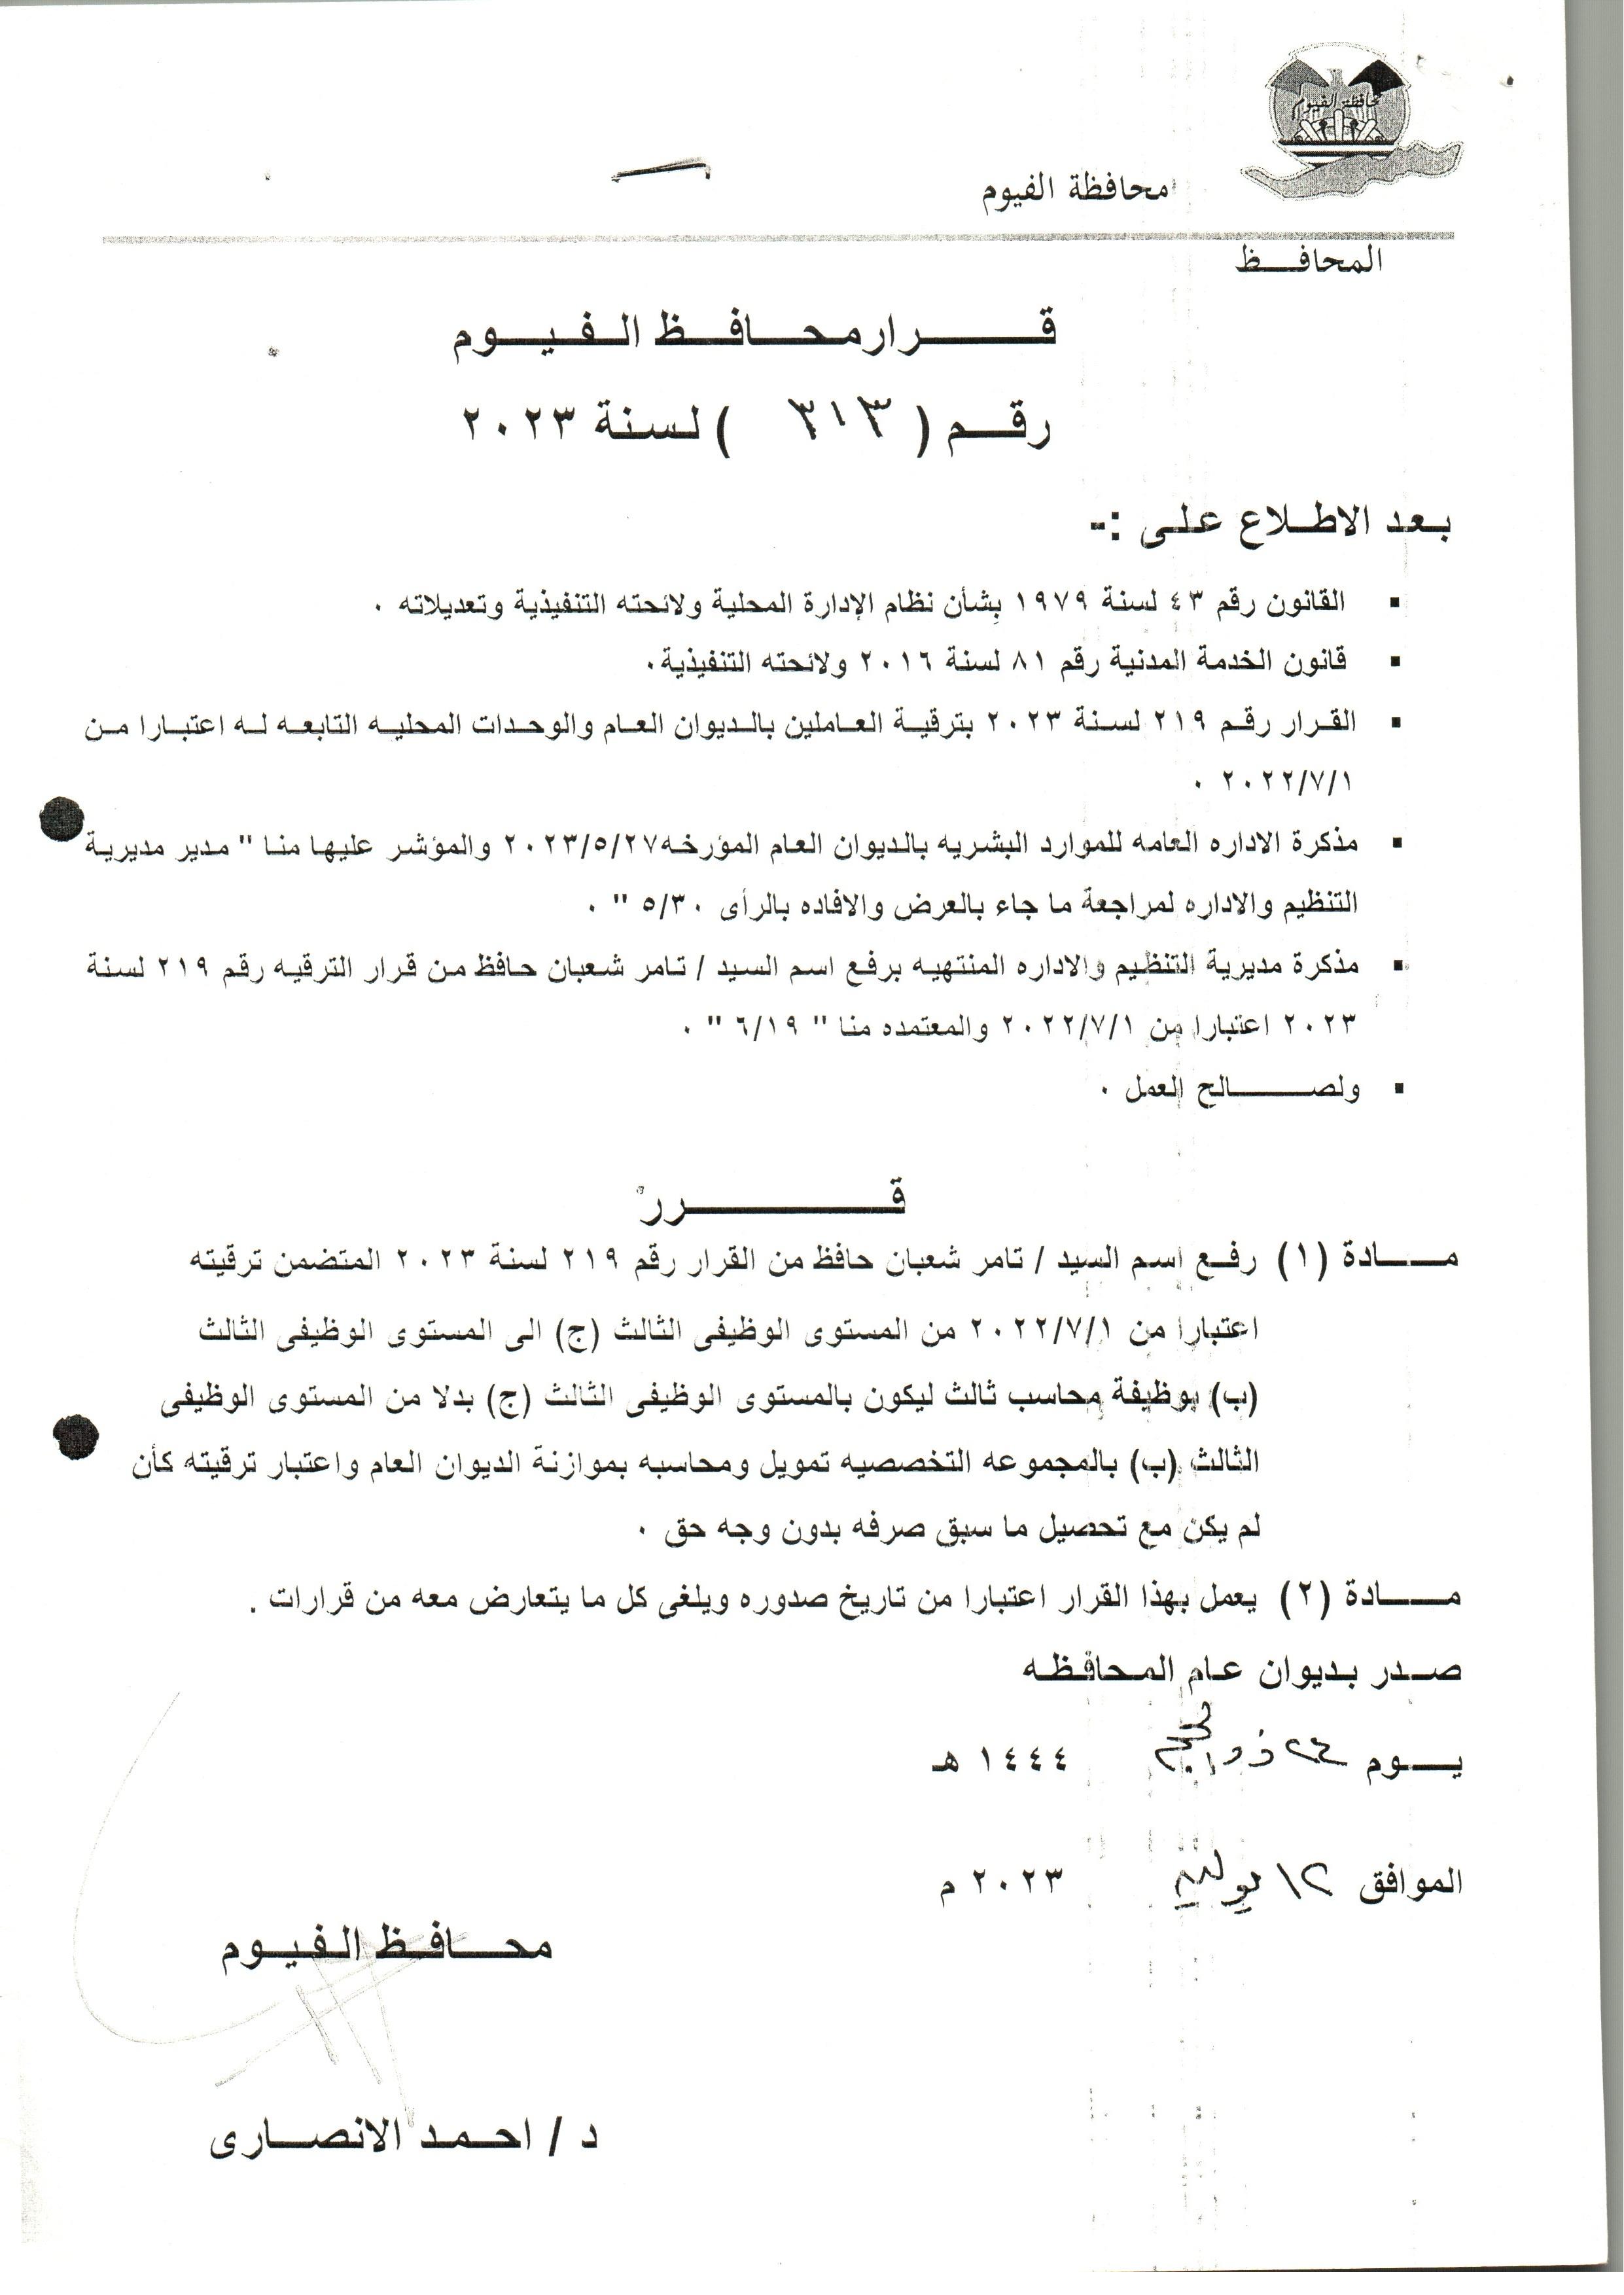 محافظة الفيوم
محافظة الفيوم
المحافـــظ
قـــــــرار محــافــظ الـفـيــوم
رقــم ( ٣١٣ ) لـسـنة ٢٠٢٣
بـعـد الاطــلاع عـلـى :-
▪ القانون رقم ٤٣ لسنة ١٩٧٩ بشأن نظام الإدارة المحلية ولائحته التنفيذية وتعديلاته ٠
▪ قانون الخدمة المدنية رقم ٨١ لسنة ٢٠١٦ ولائحته التنفيذية٠
▪ القـرار رقـم ٢١٩ لسـنة ٢٠٢٣ بترقيـة العـاملين بالـديوان العـام والوحـدات المحليـه التابعـه لـه اعتبـارا مـن
٢٠٢٢/٧/١ ٠
▪ مذكرة الاداره العامه للموارد البشريه بالديوان العام المؤرخه٢٠٢٣/٥/٢٧ والمؤشر عليها منا " مدير مديرية
التنظيم والاداره لمراجعة ما جاء بالعرض والافاده بالرأى ٥/٣٠ " ٠
▪ مذكرة مديرية التنظيم والاداره المنتهيه برفع اسم السيد / تامر شعبان حافظ من قرار الترقيه رقم ٢١٩ لسنة
٢٠٢٣ اعتبارا من ٢٠٢٢/٧/١ والمعتمده منا " ٦/١٩ " ٠
▪ ولصـــــالح العمل ٠
قــــــــــرر
مــــادة (١) رفـع اسـم السيد / تامر شعبان حافظ من القرار رقم ٢١٩ لسنة ٢٠٢٣ المتضمن ترقيته
اعتبارا من ٢٠٢٢/٧/١ من المستوى الوظيفى الثالث (ج) الى المستوى الوظيفى الثالث
(ب) بوظيفة محاسب ثالث ليكون بالمستوى الوظيفى الثالث (ج) بدلا من المستوى الوظيفى
الثالث (ب) بالمجموعه التخصصيه تمويل ومحاسبه بموازنة الديوان العام واعتبار ترقيته كأن
لم يكن مع تحصيل ما سبق صرفه بدون وجه حق ٠
مــــادة (٢) يعمل بهذا القرار اعتبارا من تاريخ صدوره ويلغى كل ما يتعارض معه من قرارات .
صـــدر بـديوان عـام المـحافـظـه
يــــوم ٢٤ ذو الحجة ١٤٤٤ هـ
الموافق ١٢ يوليو ٢٠٢٣ م
محــــافــظ الـفـيــوم
د / احـــمــد الانصـــارى